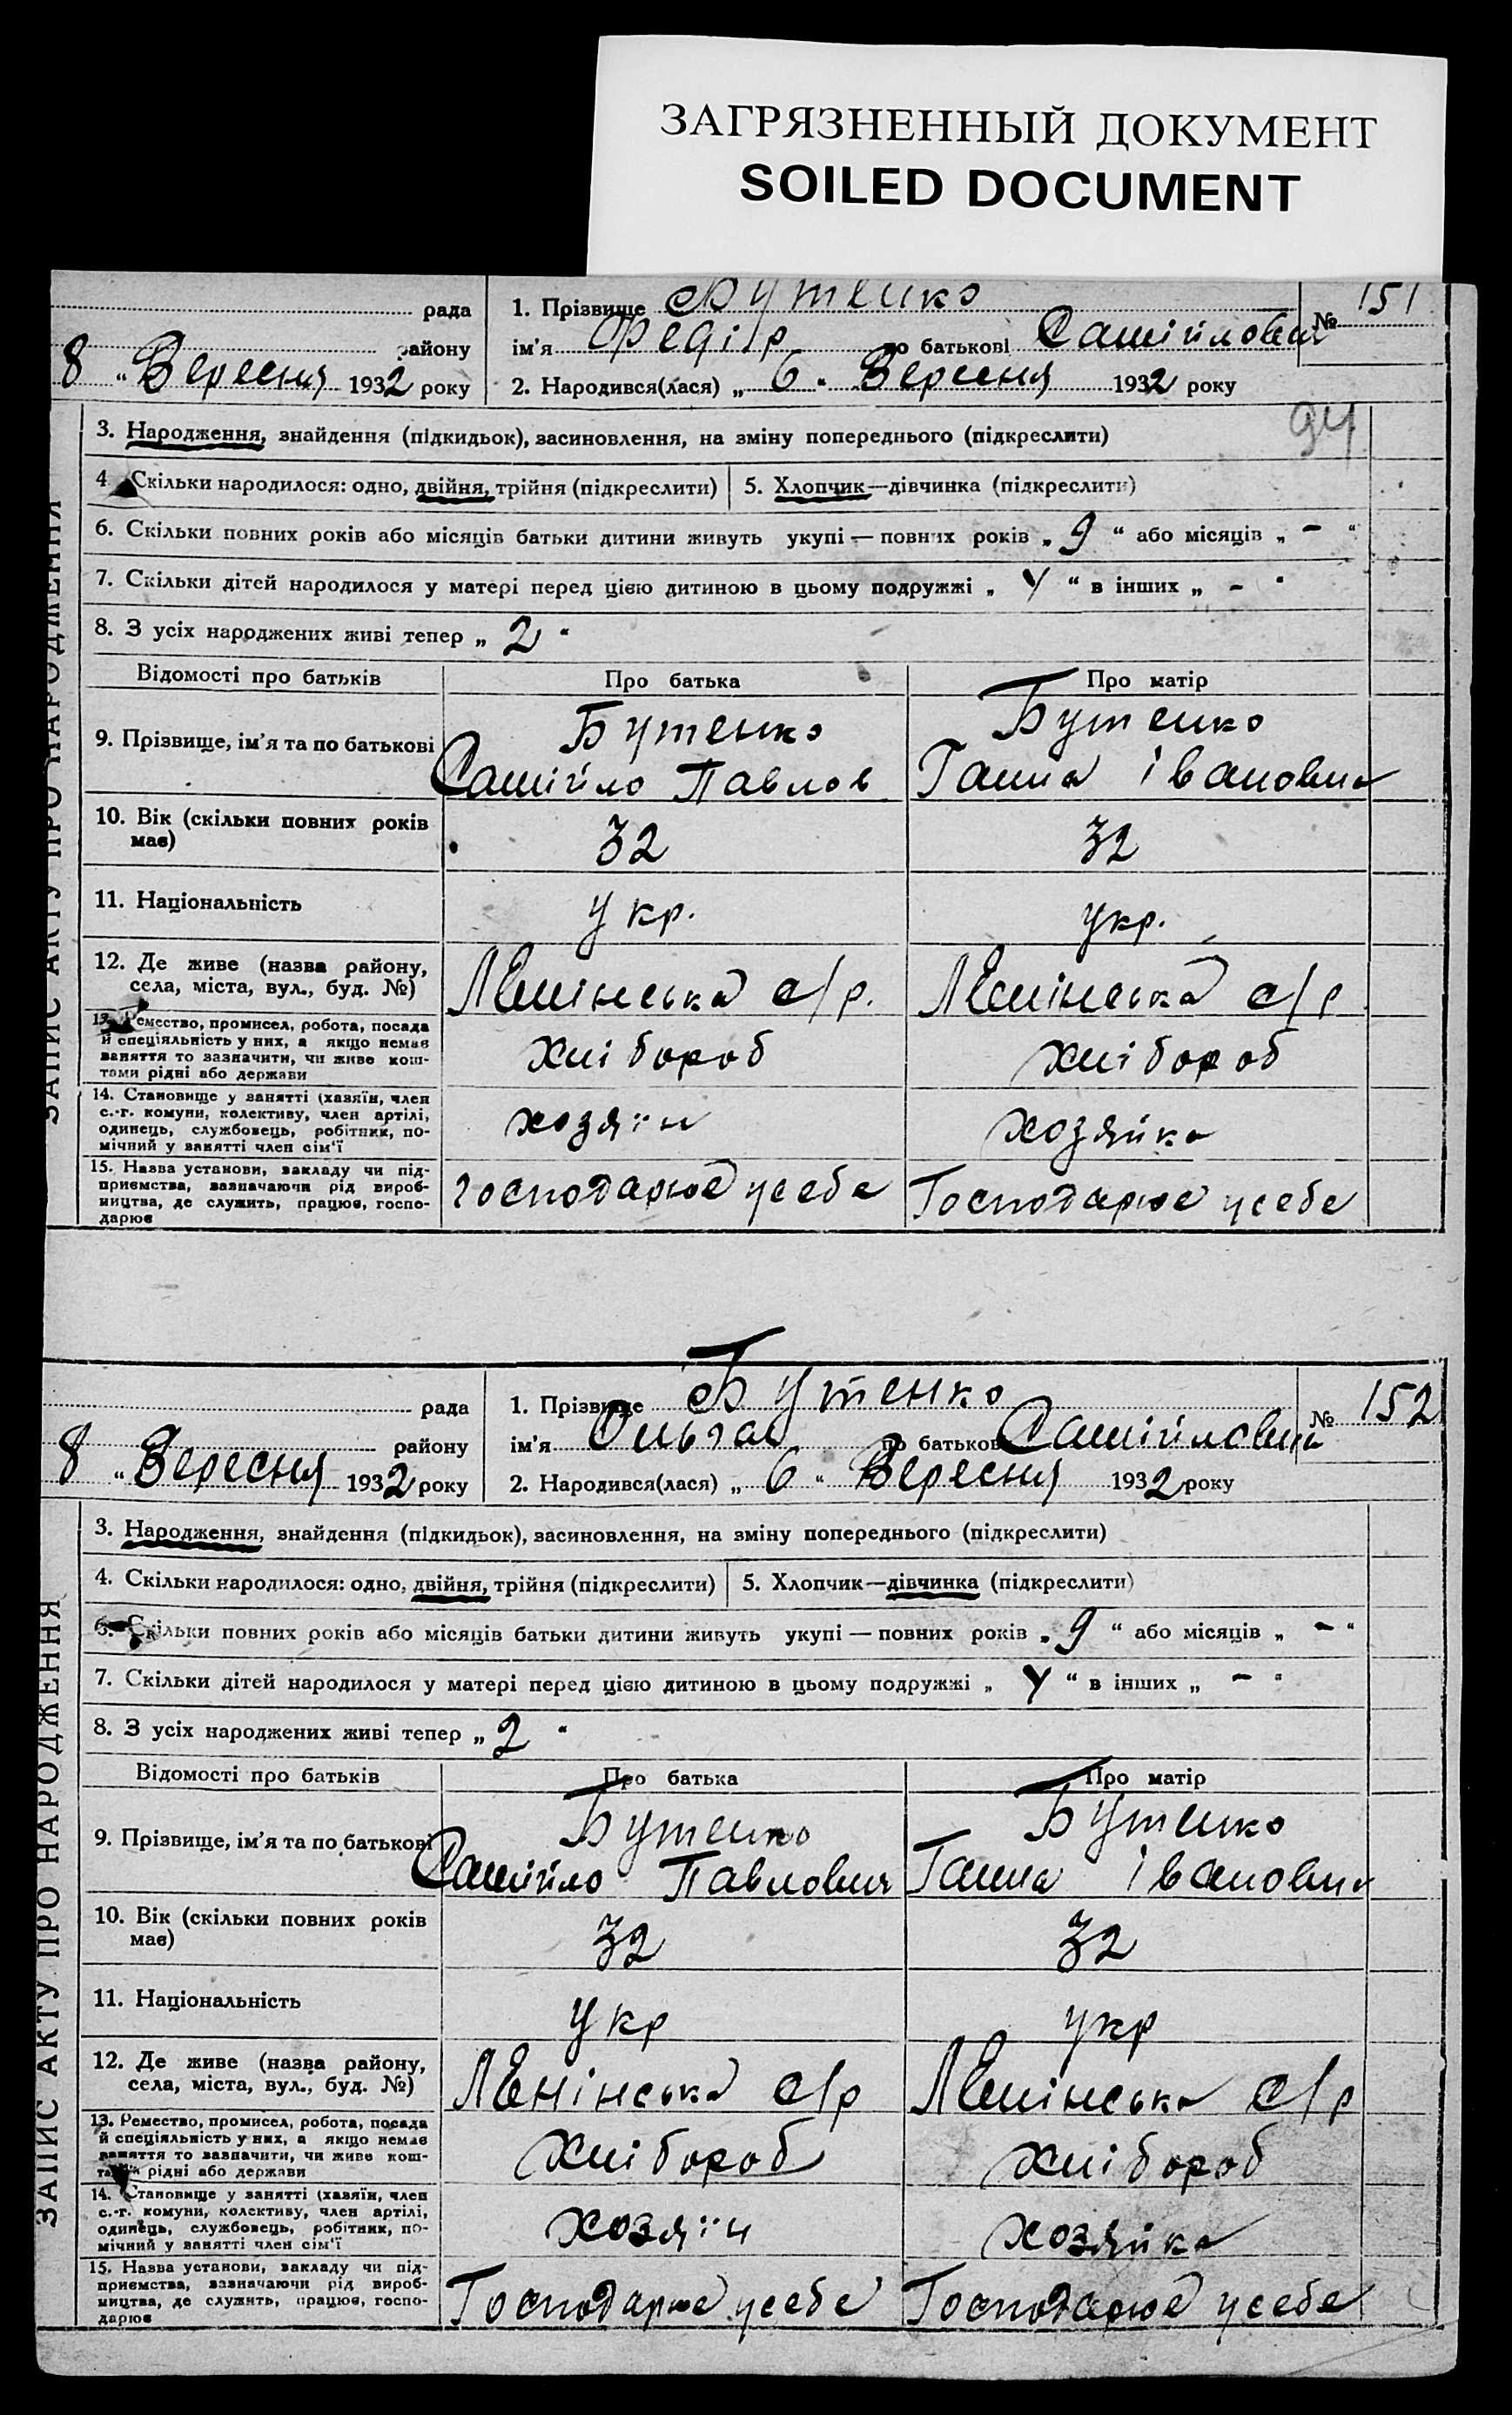 ЗАГРЯЗНЕННЫЙ ДОКУМЕНТ
SOILED DOCUMENT
рада
району
8 " Вересня 1932 року
1. Прізвище Бутенко
ім'я Федір по батькові Самійлович
№ 151
2. Народився(лася) „ 6 " Вересня 1932 року
94
ЗАПИС АКТУ ПРО НАРОДЖЕННЯ
3. Народження, знайдення (підкидьок), засиновлення, на зміну попереднього (підкреслити)
4. Скільки народилося: одно, двійня, трійня (підкреслити) 5. Хлопчик—дівчинка (підкреслити)
6. Скільки повних років або місяців батьки дитини живуть укупі — повних років „ 9 " або місяців „ - "
7. Скільки дітей народилося у матері перед цією дитиною в цьому подружжі „ 4 " в інших „ - "
8. З усіх народжених живі тепер „ 2 "
Відомості про батьків Про батька Про матір
9. Прізвище, ім'я та по батькові Бутенко Самійло Павлов Бутенко Ганна Івановна
10. Вік (скільки повних років має) 32 32
11. Національність укр. укр.
12. Де живе (назва району, села, міста, вул., буд. №) Ленінська с/р. Ленінська с/р.
13. Ремество, промисел, робота, посада й спеціяльність у них, а якщо немає заняття то зазначити, чи живе коштами рідні або держави хлібороб хлібороб
14. Становище у занятті (хазяїн, член с.-г. комуни, колективу, член артілі, одинець, службовець, робітник, помічний у занятті член сім'ї хозяїн хозяйка
15. Назва установи, закладу чи підприємства, зазначаючи рід виробництва, де служить, працює, господарює господарює у себе Господарює у себе
рада
району
8 " Вересня 1932 року
1. Прізвище Бутенко
ім'я Ольга по батькові Самійловна
№ 152
2. Народився(лася) „ 6 " Вересня 1932 року
ЗАПИС АКТУ ПРО НАРОДЖЕННЯ
3. Народження, знайдення (підкидьок), засиновлення, на зміну попереднього (підкреслити)
4. Скільки народилося: одно, двійня, трійня (підкреслити) 5. Хлопчик—дівчинка (підкреслити)
6. Скільки повних років або місяців батьки дитини живуть укупі — повних років „ 9 " або місяців „ - "
7. Скільки дітей народилося у матері перед цією дитиною в цьому подружжі „ 4 " в інших „ - "
8. З усіх народжених живі тепер „ 2 "
Відомості про батьків Про батька Про матір
9. Прізвище, ім'я та по батькові Бутенко Самійло Павлович Бутенко Ганна Івановна
10. Вік (скільки повних років має) 32 32
11. Національність укр укр
12. Де живе (назва району, села, міста, вул., буд. №) Ленінська с/р Ленінська с/р
13. Ремество, промисел, робота, посада й спеціяльність у них, а якщо немає заняття то зазначити, чи живе коштами рідні або держави хлібороб хлібороб
14. Становище у занятті (хазяїн, член с.-г. комуни, колективу, член артілі, одинець, службовець, робітник, помічний у занятті член сім'ї хозяїн хозяйка
15. Назва установи, закладу чи підприємства, зазначаючи рід виробництва, де служить, працює, господарює Господарює у себе Господарює у себе